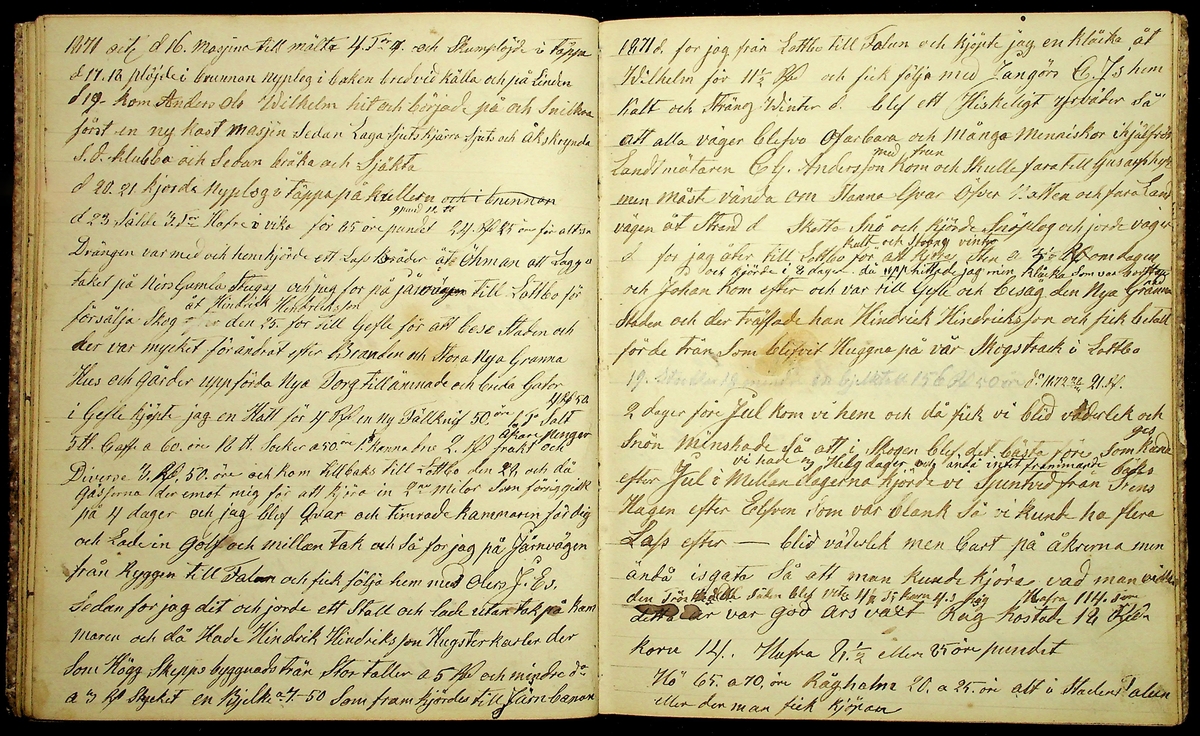 1871 octj d 16. masjina till mälta 4. Tnr 9. och Skumplöjde i täppa
d 17. 18 plöjde i brunnan nyplog i backen bredvid källa och på Linden
d 19 kom Anders Ols Wilhelm hit och började på och Snickra
först en ny kast masjin Sedan Laga Sjuts kjärra Sjuts och Åkskrynda
S. d. klubba och Sedan bråka och Sjäkta
d 20. 21. kjorde Nyplog i täppa på kullern och i brunnan
d 23 Sålde 3. Tnr Hafre i vika för 65 öre pundet 24. Rd 25 öre för altsa
Drängen var med och hemkjörde ett Lass Bräder åt Öhman att Lägga
taket på Nirs Gamla Stugu och jag for på järvägen till Lottbo för
åt Hindrick Hindricksson
försälja Skog den 25. for till Gefle för att bese Staden och
der var mycket förändrat efter Branden och Stora Nya Granna
Hus och gårder uppförda Nya Torg tillämnade och breda Gator
i Gefle kjöpte jag en Hatt for 4 Rd en ny Fällknif 50 öre 1 Tn Salt 4 Rd 50
5 tt. Caffe a 60. öre 10 tt Socker a 50 öre 1 kanna 2. Rd frakt och åkarepengar
Diverse 3. Rd. 50. öre och kom tillbaks till Lottbo den 28. och då
Gåsforna der emot mig för att kjöra in 2 milor Som föriggick
på 4 dager och jag blef Qvar och timrade kammaren färdig
och Lade in Golf och millan tak och Så for jag på Järnvägen
från Ryggen till Falun och fick följa hem med Olers J. Es.
Sedan for jag dit och jorde ett Stall och lade utan tak på kam
maren och då Hade Hindrik Hindriksson Hugsterkarler der
Som Högg Skepps byggnadsträn Stortaller a 5 Rd och mindre do
a 3 Rd Stycket en Bjelke a 7-50 Som framkjördes till Järnbanan
1871 d. for jag från Lottbo till Falun och kjöpte jag en klåcka åt
Wilhelm för 11 1/2 Rd och fick följa med Zangörs E. Js hem
kalt och Sträng Winter d. blef ett Hiskeligt yrväder Så
att alla väger blefvo Ofarbara och många Menniskor ihjälfrös
Landtmätaren C. G. Andersson med frun kom och Skulle fara till Gusarfshytt
men måst vända om Stanna Qvar öfver Natten och fara Lans
vägen åt Strand d Skotta Snö och kjörde Snöplog och jorde väger
kalt och Sträng vinter
d for jag åter till Lottbo for att kjöra Sten a 3 Rd om dagen
och kjörde i 8 dager. då upphittade jag min klåcka Som var borttap
och Johan kom efter och var till Gefle och besåg den Nya Granna
Staden och der träffade han Hindrick Hindricksson och fick betalt
för de trän Som blefvit Huggna på vår Skogstrack i Lottbo
19. Stockar 18 mindre en bjelke till 156 Rd 50 öre do 1872 21 Rd.
2 dager före Jul kom vi hem och då fick vi blid väderlek och
Snön minskade Så att i Skogen blef det bästa före Som kund ges
vi hade 3 Helgdager och ändå intet främmande
efter Jul i Mellandagerna kjörde vi Sjuntved från Irens
Hagen efter Elfven Som var blank Så vi kunde ha flera
Lass efter — blid väderlek men Bart på åkrerna men
ändå isgata Så att man kunde kjöra vad man ville
den Tröskade Säden blef
detta år var god årsväxt Råg kostade 18 Rd
korn 14. Hafra 8 1/2 eller 75 öre pundet
Hö 65. a 70. öre Råghalm 20. a 25. öre alt i Staden Falun
eller der man fick kjöpan